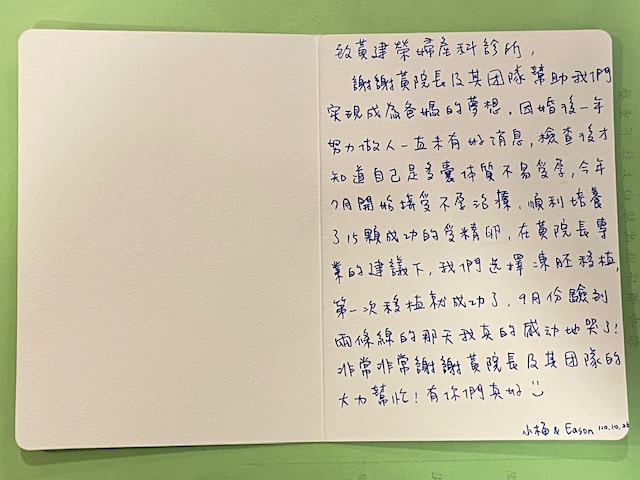 致黃建榮婦產科診所，
謝謝黃院長及其团隊幫助我們
实現成為爸媽的夢想，因婚後一年
努力做人一直未有好消息，檢查後才
知道自己是多囊体質不易受孕，今年
7月開始接受不孕治療，順利培養
了15顆成功的受精卵，在黃院長專
業的建議下，我們选擇凍胚移植，
第一次移植就成功了，9月份驗到
兩條線的那天我真的感动地哭了！
非常非常謝謝黃院長及其团隊的
大力幫忙！有你們真好
& Eason 110.10.26